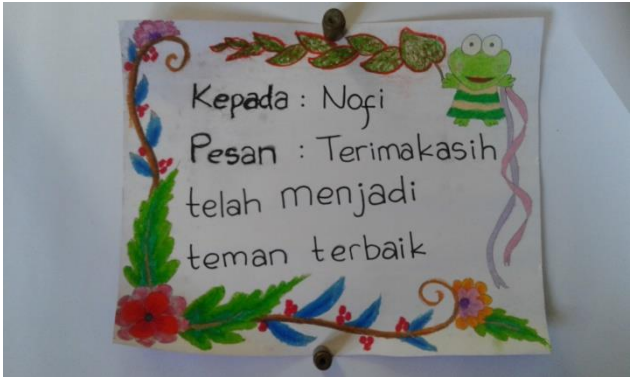 Kepada : Nofi
Pesan : Terimakasih
telah menjadi
teman terbaik